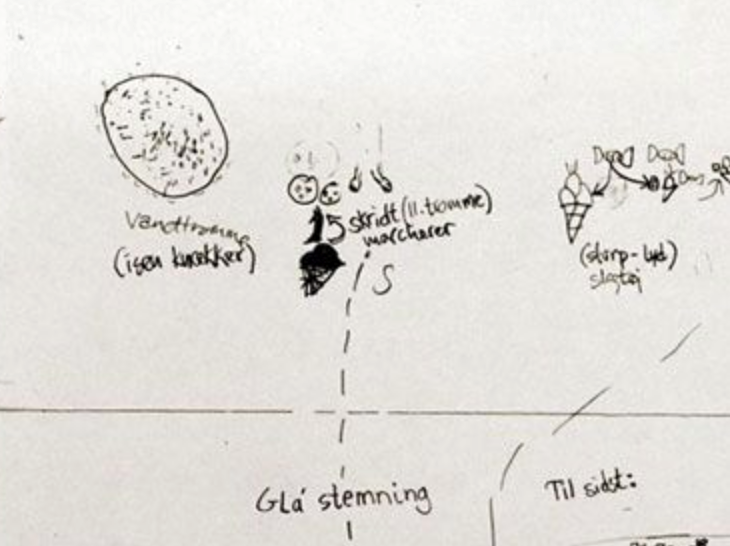 Vandtromme
(isen knækker)
15 skridt (11. tromme)
marcherer
S
(slurp-lyd)
slagtøj
Gla' stemning
Til sidst: